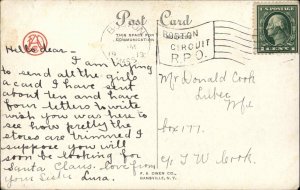 Post Card
THIS SPACE FOR
COMMUNICATION
BOSTON
CIRCUIT
R.P.O.
1 CENT 1
Hello dear—
I am trying
to send all the girls
a card I have sent
about ten and have
four letters to write
wish you was here to
see how pretty the
stores are trimmed I
suppose you will
soon be looking for
Santa Claus. love from
your Sister Lura.
Mr Donald Cook
Lubec
Me
box 177.
c/o F W Cook.
F. A. OWEN CO.
DANSVILLE, N.Y.